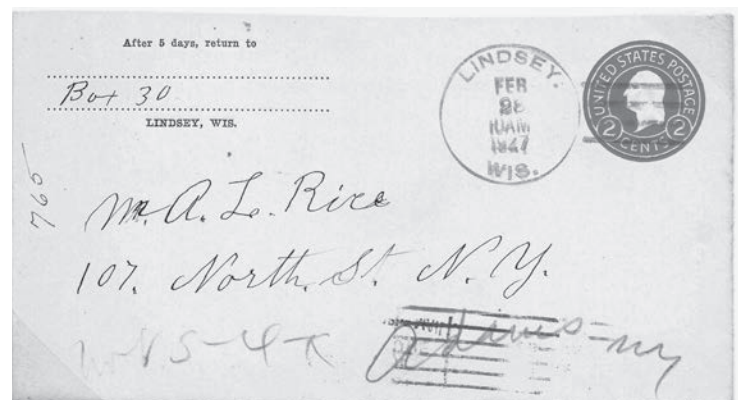 After 5 days, return to
Box 30
LINDSEY, WIS.
LINDSEY.
FEB
28
10AM
1947
WIS.
UNITED STATES POSTAGE
2 CENTS 2
765
Mr. A. L. Rice
107. North. St. N. Y.
Adams - NY